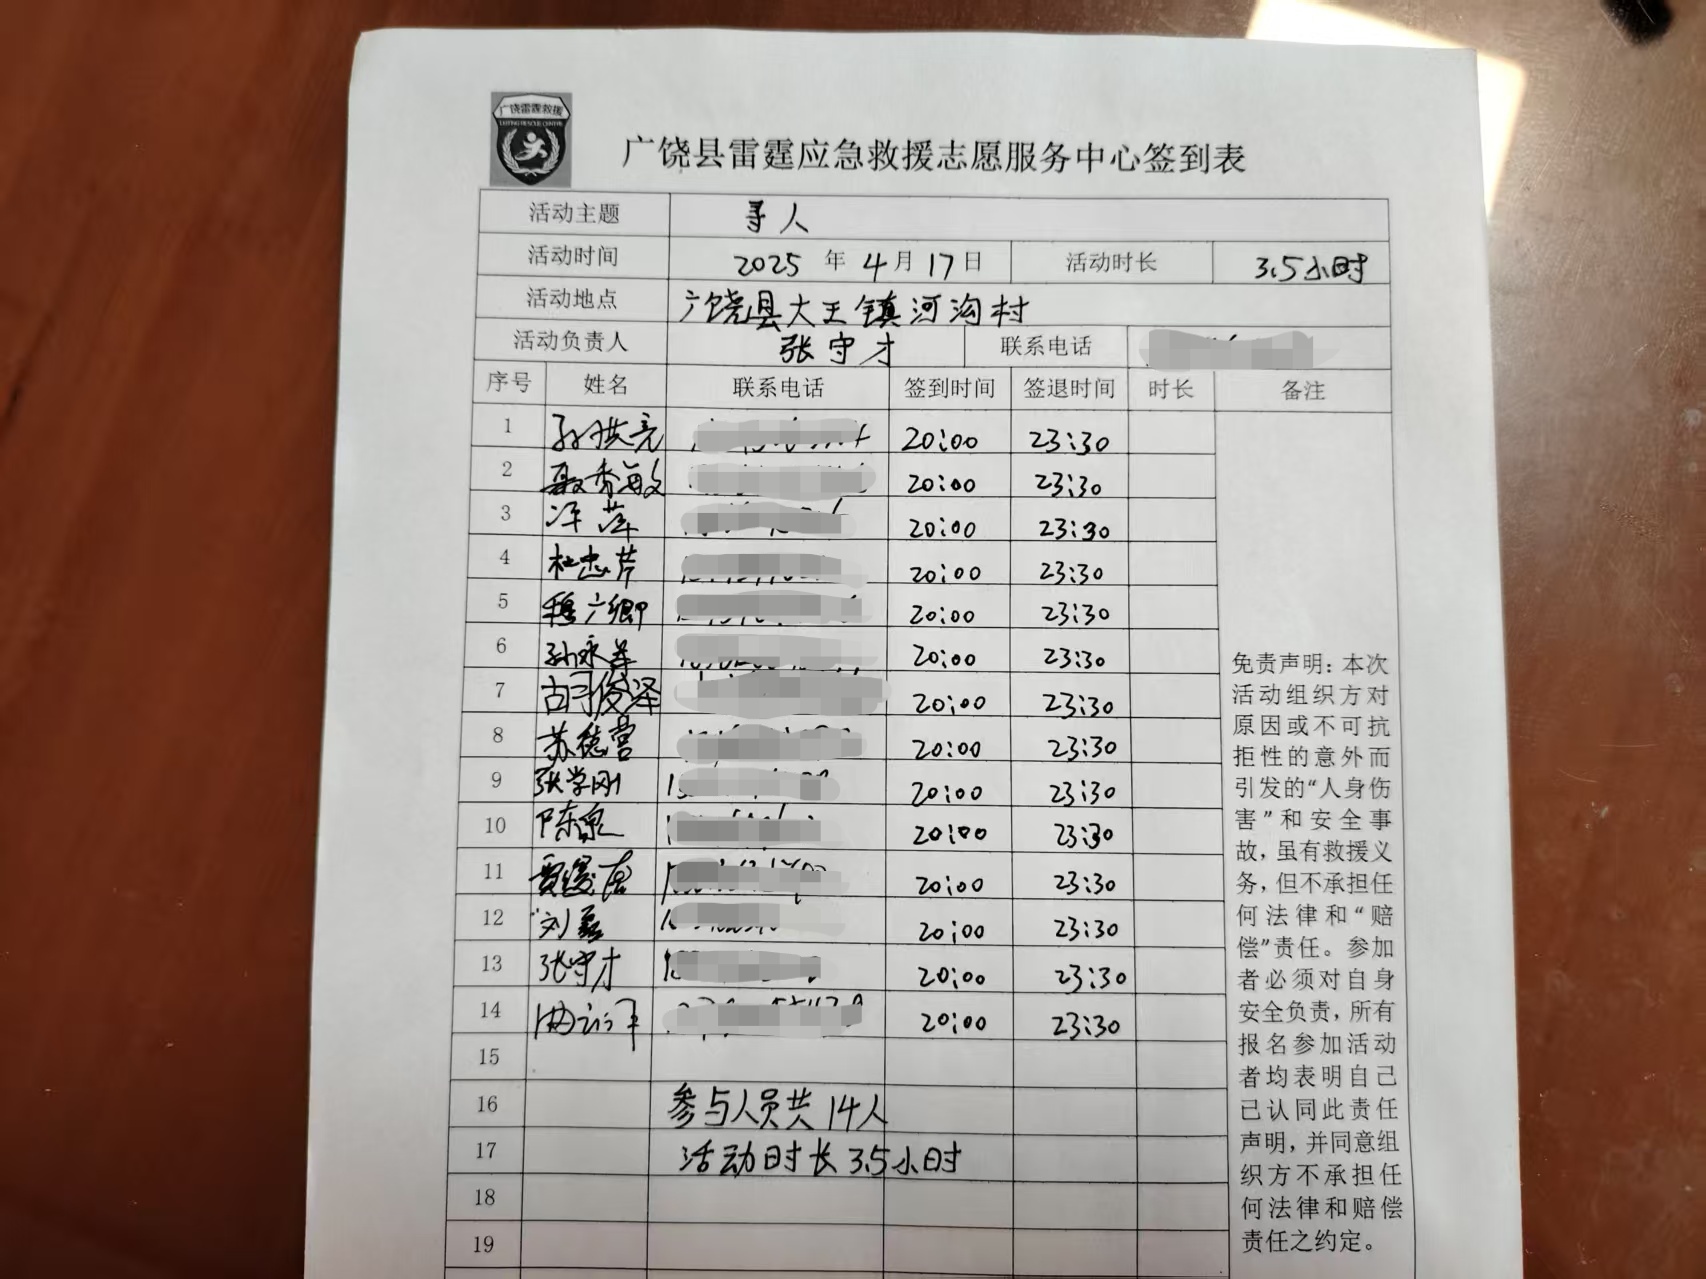 广饶雷霆救援
广饶县雷霆应急救援志愿服务中心签到表
活动主题 寻人
活动时间 2025 年 4 月 17 日 活动时长 3.5小时
活动地点 广饶县大王镇河沟村
活动负责人 张守才 联系电话
序号 姓名 联系电话 签到时间 签退时间 时长 备注
1 孙洪亮 20:00 23:30
2 聂秀敏 20:00 23:30
3 20:00 23:30
4 杜忠芹 20:00 23:30
5 穆广卿 20:00 23:30
6 孙永 20:00 23:30
7 俊泽 20:00 23:30
8 苏德营 20:00 23:30
9 张学刚 20:00 23:30
10 陈泉 20:00 23:30
11 20:00 23:30
12 刘磊 20:00 23:30
13 张守才 20:00 23:30
14 20:00 23:30
15
16 参与人员共14人
17 活动时长3.5小时
18
19
免责声明：本次
活动组织方对
原因或不可抗
拒性的意外而
引发的“人身伤
害”和安全事
故，虽有救援义
务，但不承担任
何法律和“赔
偿”责任。参加
者必须对自身
安全负责，所有
报名参加活动
者均表明自己
已认同此责任
声明，并同意组
织方不承担任
何法律和赔偿
责任之约定。